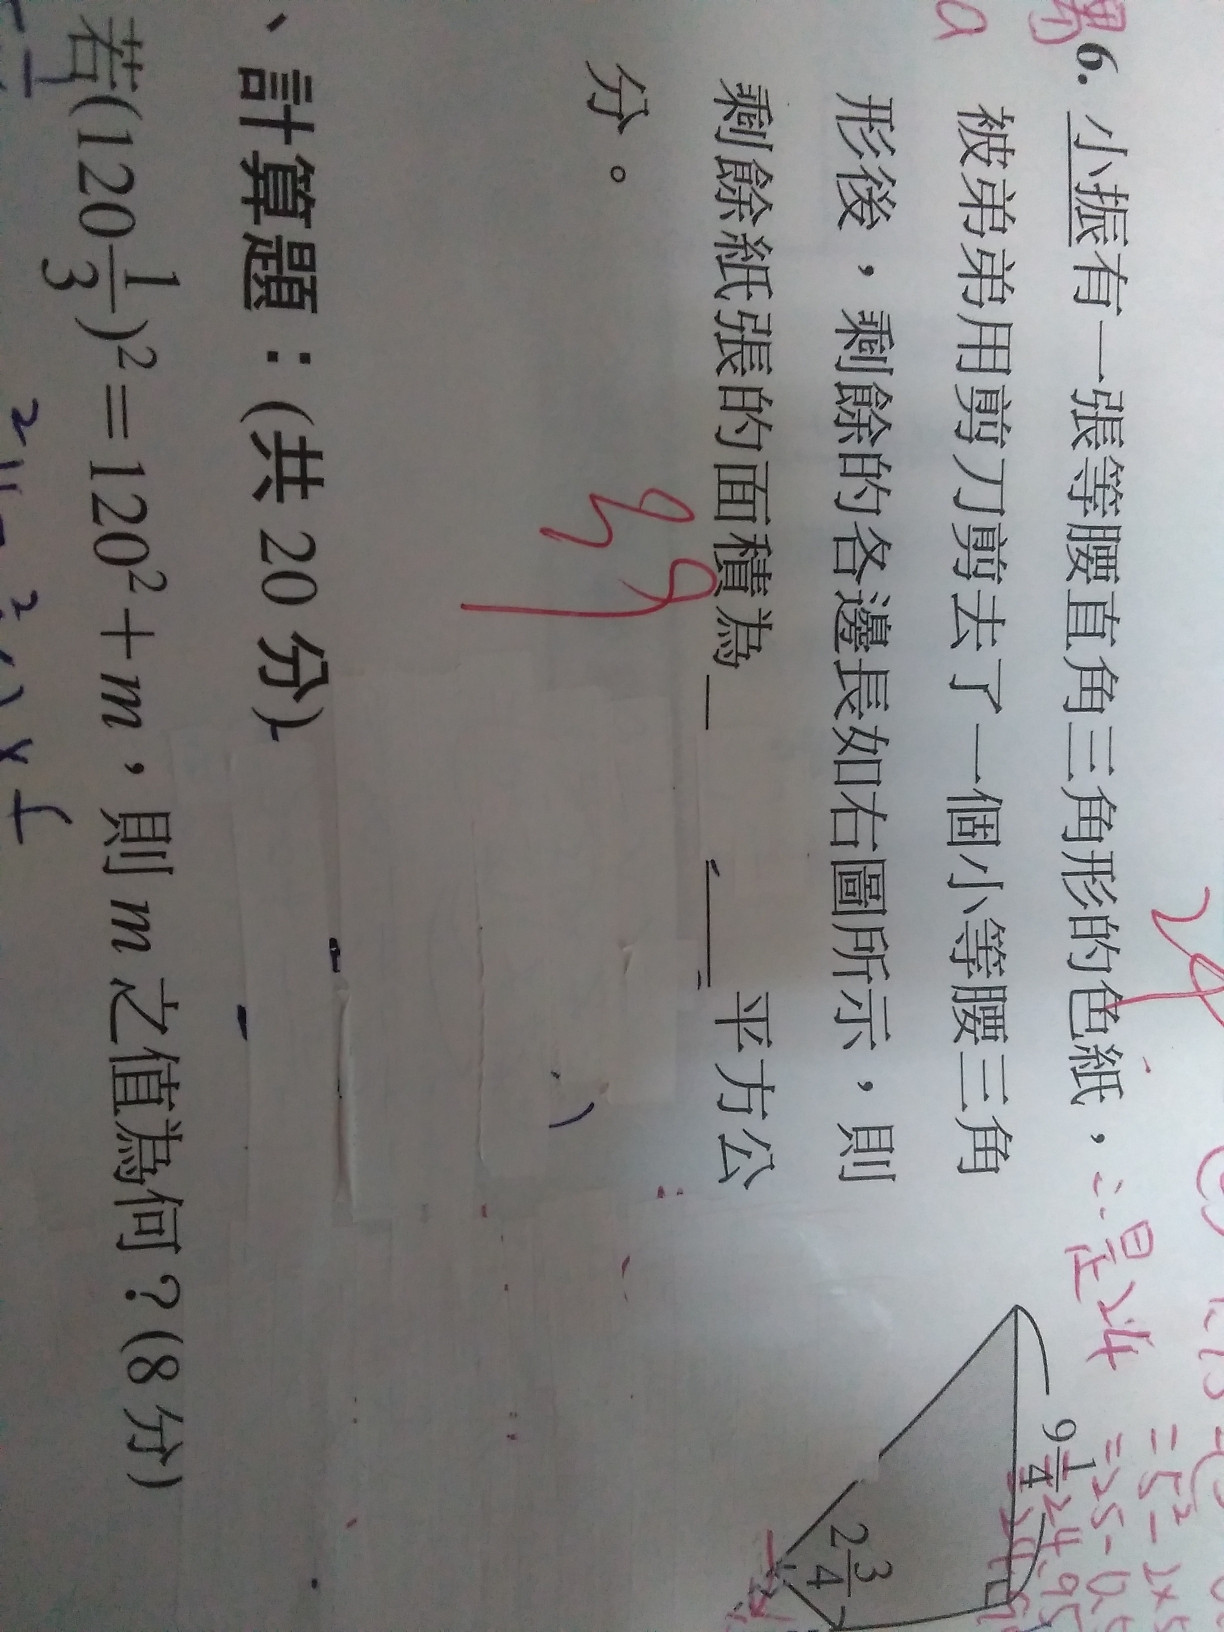 6. 小振有一張等腰直角三角形的色紙，
被弟弟用剪刀剪去了一個小等腰三角
形後，剩餘的各邊長如右圖所示，則
剩餘紙張的面積為＿ ＿平方公
分。
9 1/4
2 3/4
∴是24
=5²-2×5
=25-0.5
24.95
39
、計算題：(共 20 分)
若(120 1/3)²=120²+m，則 m 之值為何？(8 分)